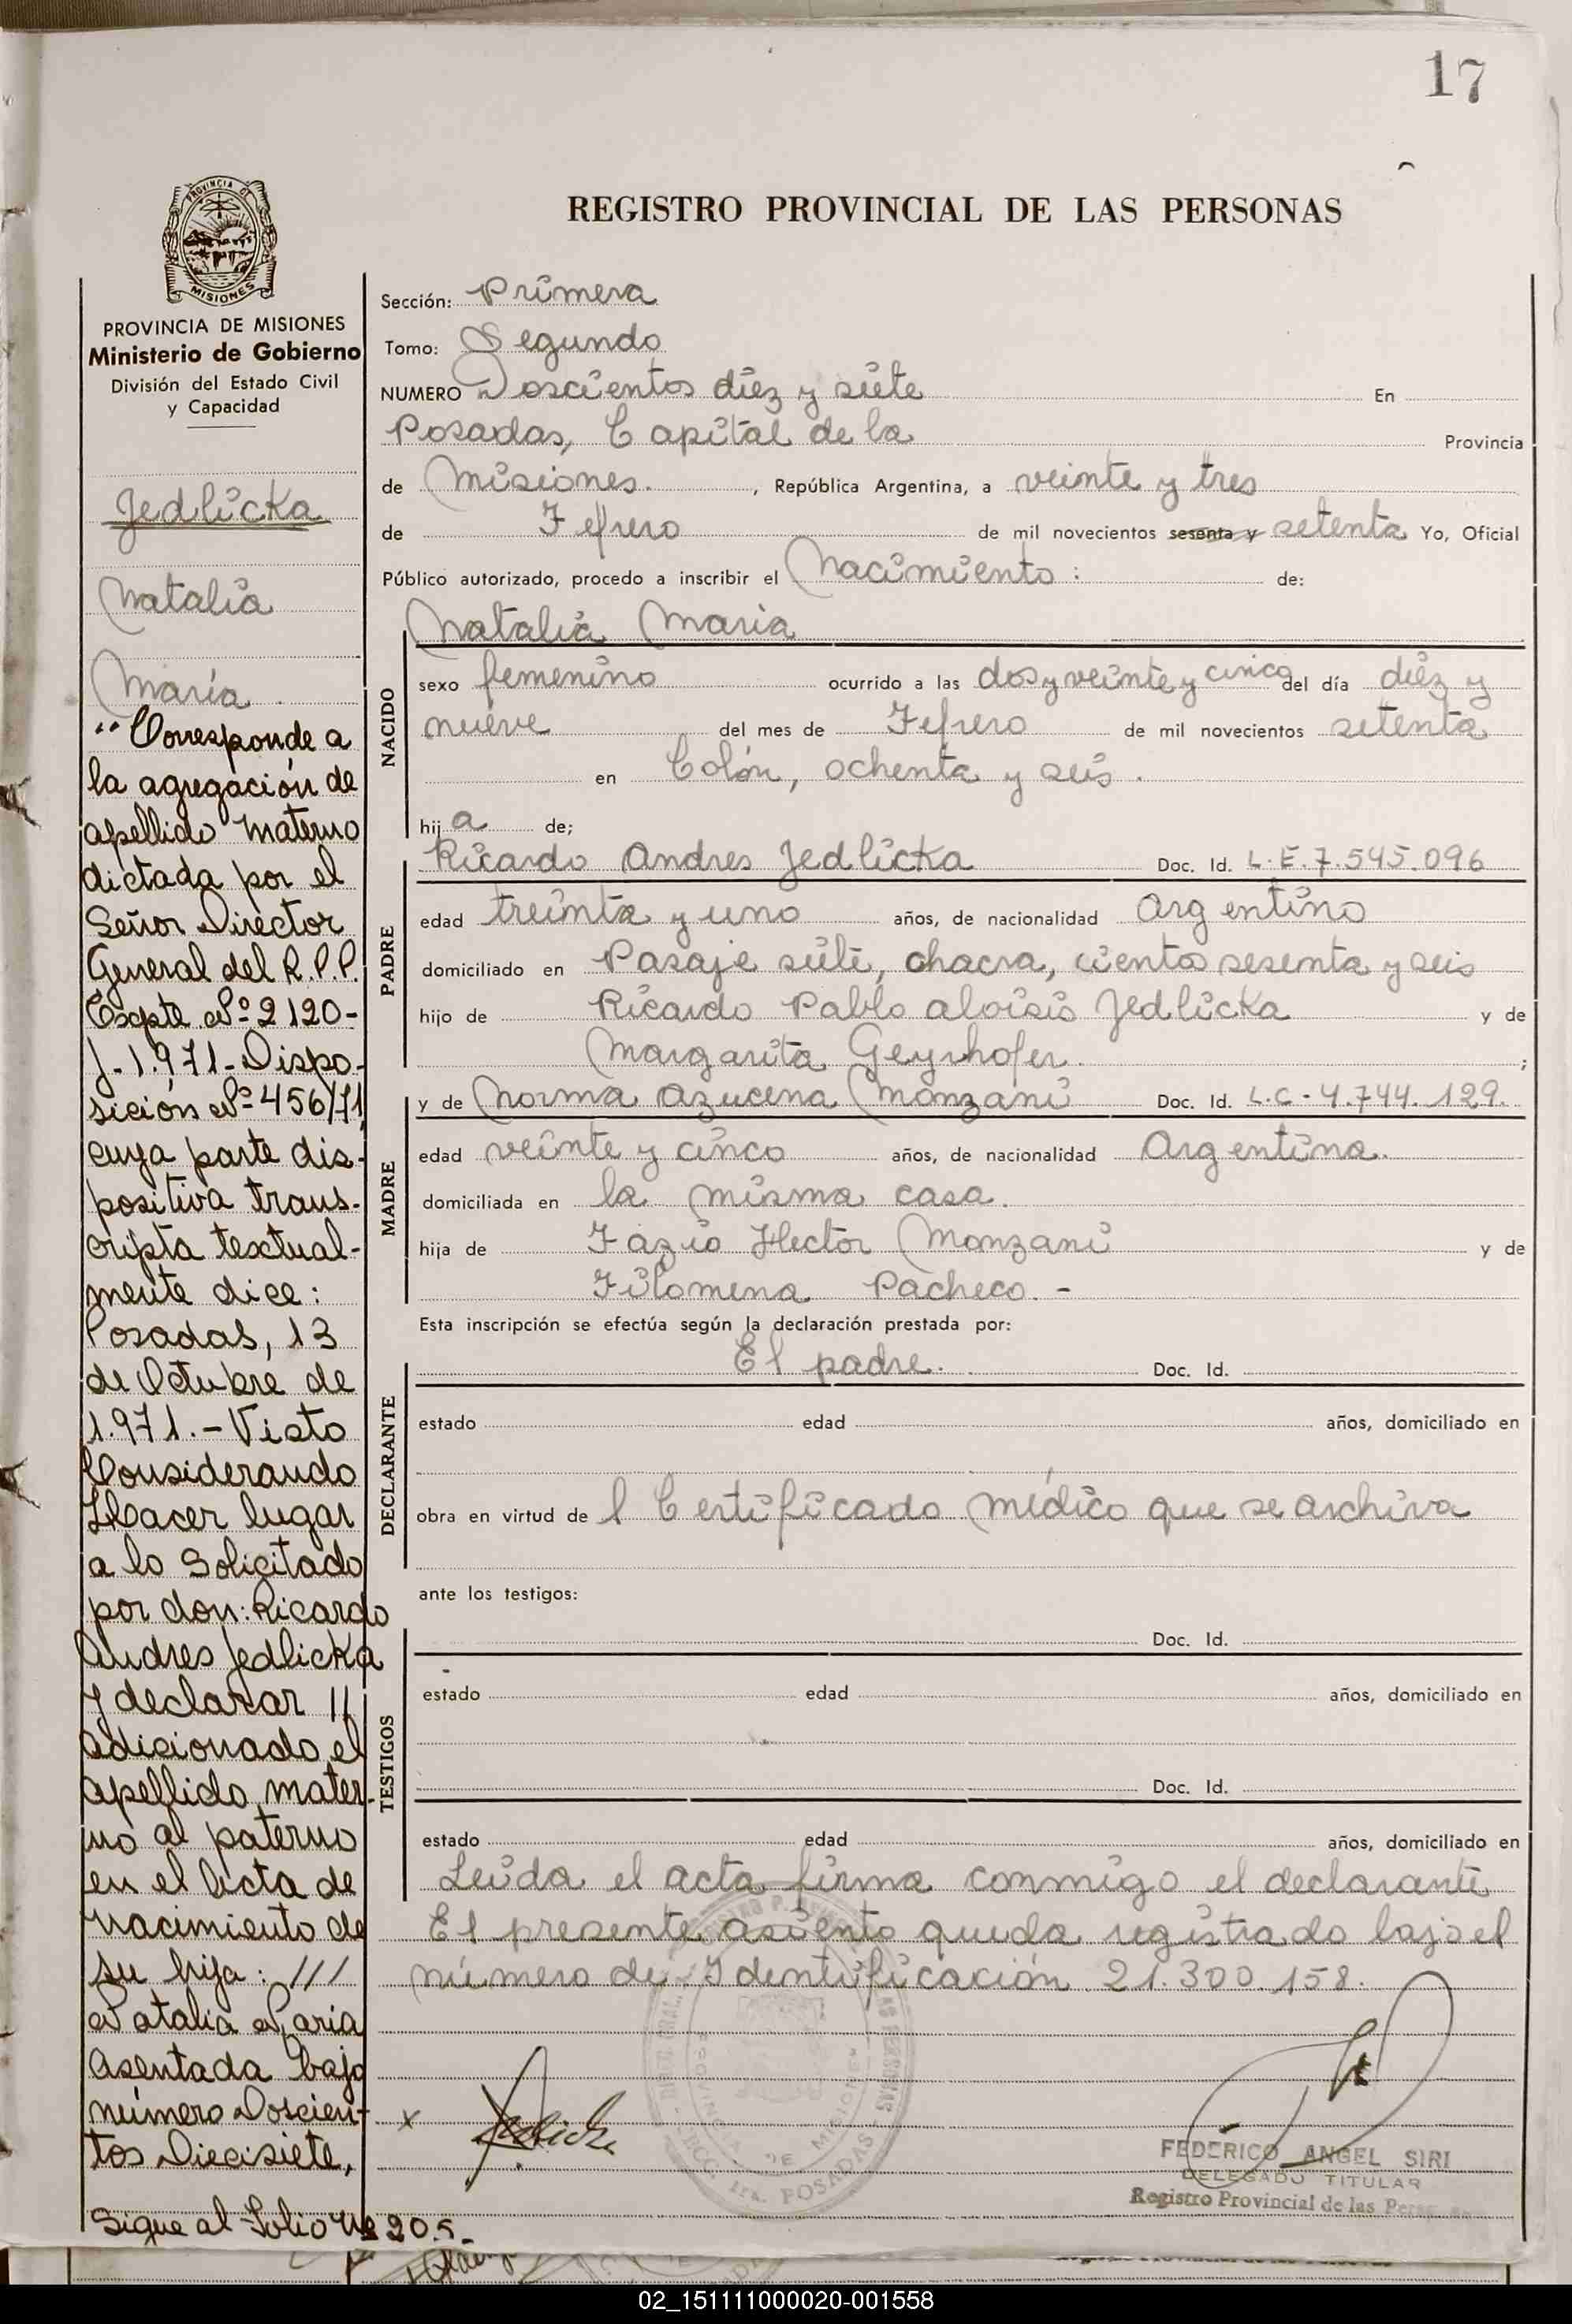 17
REGISTRO PROVINCIAL DE LAS PERSONAS
PROVINCIA DE
MISIONES
PROVINCIA DE MISIONES
Ministerio de Gobierno
División del Estado Civil
y Capacidad
Jedlicka
Natalia
María
"Corresponde a
la agregación de
apellido materno
dictada por el
Señor Director
General del R.P.P.
Expte Nº 2120-
J-1.971-Dispo-
sición Nº 456/71
cuya parte dis-
positiva trans-
cripta textual-
mente dice:
Posadas, 13
de Octubre de
1.971.- Visto
Considerando
Hacer lugar
a lo Solicitado
por don: Ricardo
Andres Jedlicka
y declarar //
adicionado el
apellido mater-
no al paterno
en el Acta de
nacimiento de
su hija: ///
Natalia Maria
Asentada bajo
número Doscien-
tos Diecisiete,
Sigue al Folio Nº 205-
Sección: Primera
Tomo: Segundo
NUMERO Doscientos diez y siete En
Posadas, Capital de la Provincia
de Misiones. , República Argentina, a veinte y tres
de Febrero de mil novecientos sesenta y setenta Yo, Oficial
Público autorizado, procedo a inscribir el Nacimiento: de:
Natalia Maria
NACIDO
sexo femenino ocurrido a las dos y veinte y cinco del día diez y
nueve del mes de Febrero de mil novecientos setenta
en Colón, ochenta y seis.
hija de;
PADRE
Ricardo Andres Jedlicka Doc. Id. L.E.7.545.096
edad treinta y uno años, de nacionalidad Argentino
domiciliado en Pasaje siete, chacra, ciento sesenta y seis
hijo de Ricardo Pablo Aloisio Jedlicka y de
Margarita Geyrhofer. ;
MADRE
y de Norma Azucena Monzani Doc. Id. L.C-4.744.129.
edad veinte y cinco años, de nacionalidad Argentina.
domiciliada en la misma casa.
hija de Fazio Hector Monzani y de
Filomena Pacheco. -
Esta inscripción se efectúa según la declaración prestada por:
DECLARANTE
El padre. Doc. Id.
estado edad años, domiciliado en
obra en virtud de l Certificado médico que se archiva
ante los testigos:
TESTIGOS
Doc. Id.
estado edad años, domiciliado en
Doc. Id.
estado edad años, domiciliado en
Leida el acta firma conmigo el declarante
El presente asiento queda registrado bajo el
número de Identificación 21.300.158.
x Jedlicka
PROVINCIA DE MISIONES
POSADAS
FEDERICO ANGEL SIRI
DELEGADO TITULAR
Registro Provincial de las
02_151111000020-001558